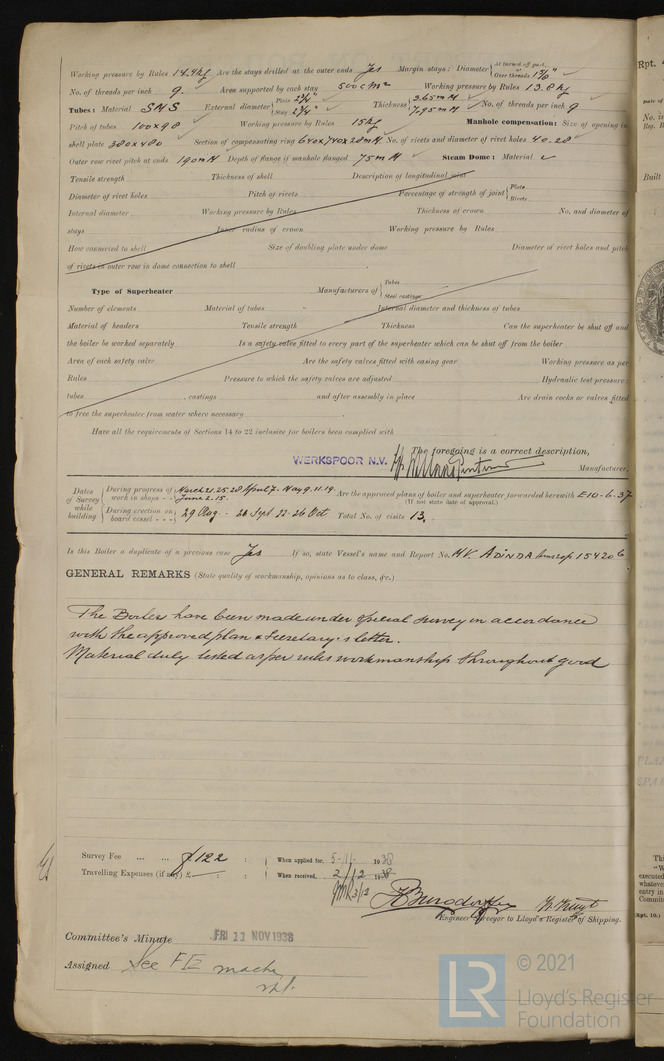 Working pressure by Rules 14.4 kg Are the stays drilled at the outer ends Yes Margin stays: Diameter { At turned off part, or Over threads 1⅞"
No. of threads per inch 9. Area supported by each stay 500 cm² Working pressure by Rules 13.8 kg
Tubes: Material SMS External diameter { Plain 2¾" Stay 2¾" Thickness { 3.65 m M 7.95 m M No. of threads per inch 9
Pitch of tubes 100 x 98 Working pressure by Rules 15 kg Manhole compensation: Size of opening in
shell plate 380 x 480 Section of compensating ring 640x740x28mM No. of rivets and diameter of rivet holes 40-28
Outer row rivet pitch at ends 190mM Depth of flange if manhole flanged 75mM Steam Dome: Material
Tensile strength Thickness of shell Description of longitudinal joint
Diameter of rivet holes Pitch of rivets Percentage of strength of joint { Plate Rivets
Internal diameter Working pressure by Rules Thickness of crown No. and diameter of
stays Inner radius of crown Working pressure by Rules
How connected to shell Size of doubling plate under dome Diameter of rivet holes and pitch
of rivets in outer row in dome connection to shell
Type of Superheater Manufacturers of { Tubes Steel castings
Number of elements Material of tubes Internal diameter and thickness of tubes
Material of headers Tensile strength Thickness Can the superheater be shut off and
the boiler be worked separately Is a safety valve fitted to every part of the superheater which can be shut off from the boiler
Area of each safety valve Are the safety valves fitted with easing gear Working pressure as per
Rules Pressure to which the safety valves are adjusted Hydraulic test pressure:
tubes , castings and after assembly in place Are drain cocks or valves fitted
to free the superheater from water where necessary
Have all the requirements of Sections 14 to 22 inclusive for boilers been complied with
The foregoing is a correct description,
WERKSPOOR N.V. Manufacturer.
Dates of Survey while building { During progress of work in shops - - March 21.25.28 April 7. May 9.11.19 June 2.15. Are the approved plans of boiler and superheater forwarded herewith E10-6-37
(If not state date of approval.)
During erection on board vessel - - - 29 Aug. - 20 Sept 12-26 Oct Total No. of visits 13.
Is this Boiler a duplicate of a previous case Yes If so, state Vessel's name and Report No. MV. ADINDA 154206
GENERAL REMARKS (State quality of workmanship, opinions as to class, &c.)
The Boilers have been made under special survey in accordance
with the approved plan & Secretary's letter.
Material duly tested as per rules workmanship throughout good
Survey Fee ... ... ƒ122 : : When applied for, 5-11- 1938
Travelling Expenses (if any) £ : : When received, 2/12 1938
GMR 3/12
Engineer Surveyor to Lloyd's Register of Shipping.
Committee's Minute FRI 11 NOV 1938
Assigned See FE machy
rpt.
Rpt.
Date of
No. in
Reg. B
Built
Th
"W
executed
whatever
entry in
Committ
Rpt. 10.)
LR
© 2021
Lloyd's Register
Foundation